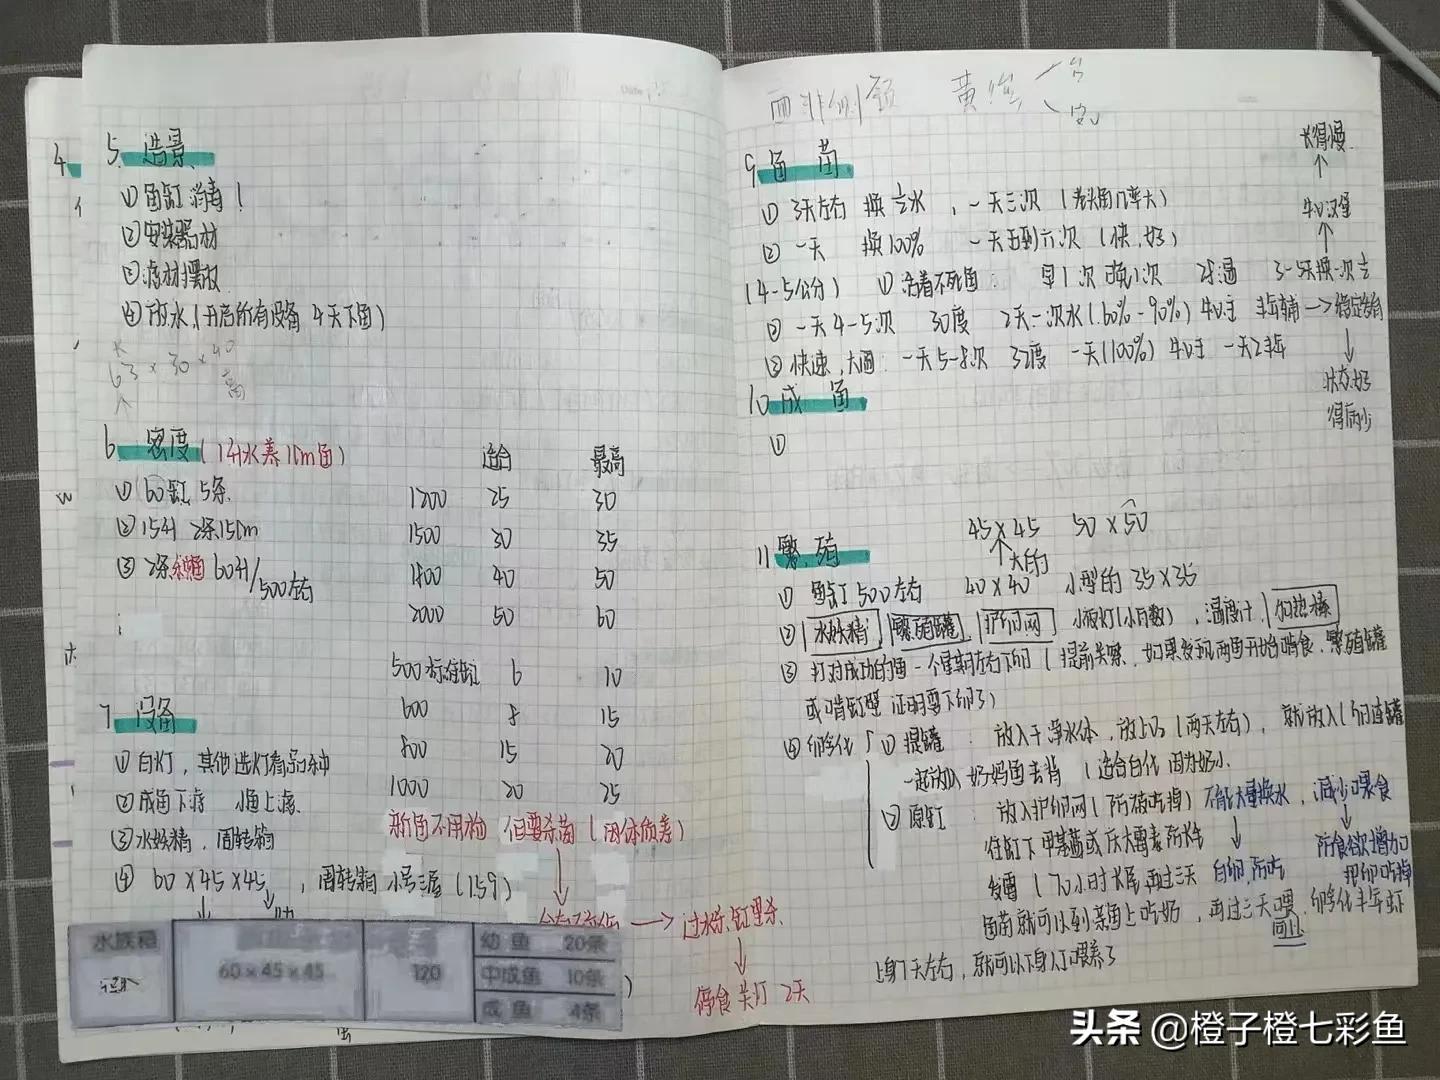 4
5 造景
① 鱼缸消毒！
② 安装器材
③ 滤材摆放
④ 放水（开启所有设备 4天下鱼）
长
63 × 30 × 40
高
6 密度（1升水养1cm鱼）
① 60缸 5条
② 15升 2条15cm
③ 2条种鱼 60升/500左右
适合 最高
1200 25 30
1500 30 35
1800 40 50
2000 50 60
500标准缸 6 10
600 8 15
800 15 20
1000 20 25
7 设备
① 白灯，其他选灯看品种
② 成鱼下滤 小鱼上滤
③ 水妖精，周转箱
④ 60×45×45 ，周转箱 小号三层（159）
新鱼不用泡 但要杀菌（因体质差）
→ 过水杀，缸里杀
停食 关灯 2天
水族箱
60×45×45
120
幼鱼 20条
中成鱼 10条
成鱼 4条
西非侧颈
9 鱼苗
① 3天左右 换½水，一天三次（老头鱼几率大）
② 一天 换100% 一天五到六次（快，好）
（4-5公分） ① 活着不死鱼： 早1次 晚1次 28温 3-5天换一次½
② 一天4-5次 30度 2天一次水（60%-90%）牛心主 丰年辅 → 稳定
③ 快速，大鱼：一天5-8次 32度 一天（100%）牛心主 一天2丰年
长得慢
牛心汉堡
状态好
得病少
10 成鱼
①
11 繁殖
45×45 50×50
大的
① 鱼缸500左右 40×40 小型的 35×35
② 水妖精 繁殖罐 护卵网 小夜灯（小瓦数），温度计，加热棒
③ 打对成功的鱼一个星期左右下卵（提前关察，如果发现两鱼开始啃食，繁殖罐
或啃缸壁 证明要下卵了）
④ 孵化 ① 提罐： 放入干净水体，放上
（两天左右），就放入
一起放入 奶妈鱼去背（适合白化 因为奶小
② 原缸： 放入护卵网（防被吃掉）不能大量换水，减少喂食
往缸下甲基蓝或庆大霉素防水生
发霉（70小时长尾 再过三天 白卵，防吃
防食欲增加 把卵吃掉
鱼苗就可以到亲鱼上吃奶，再过三天喂 孵化丰年虾
上身7天左右，就可以下身人工喂养了
头条 @橙子橙七彩鱼